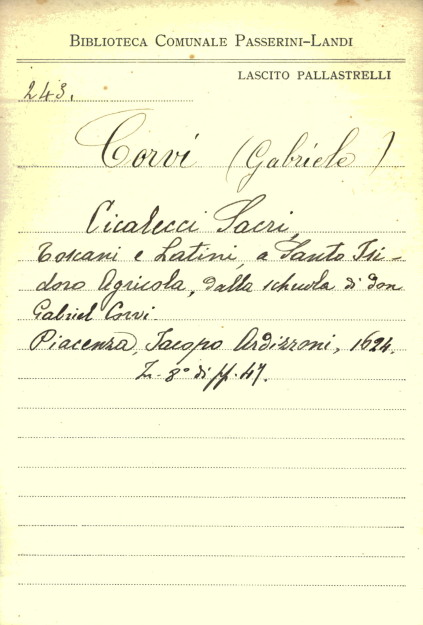 BIBLIOTECA COMUNALE PASSERINI-LANDI
LASCITO PALLASTRELLI
243.
Corvi (Gabriele)
Cicalecci Sacri,
Toscani e Latini, a Santo Isi-
doro Agricola, dalla schuola di don
Gabriel Corvi.
Piacenza, Jacopo Ardizzoni, 1624.
8° di pp. 47.